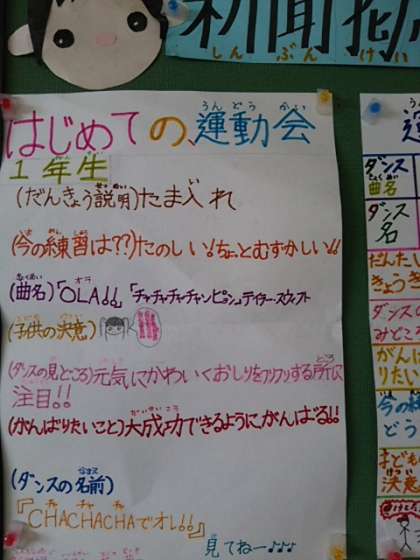 新聞
しんぶんけい
はじめての、運動会
うんどうかい
1年生
(だんきょう説明)たま入れ
(今の練習は??)たのしい!ちょっとむずかしい!!
(曲名)「OLA!!」「チャチャチャチャンピオン」テイラー・スウィフト
(子供の決意)
(ダンスの見どころ)元気にかわいくおしりをフリフリする所に
注目!!
(がんばりたいこと)大成功できるようにがんばる!!
(ダンスの名前)
『CHACHACHAでオレ!!』
見てねー♪♪♪
ダンス
曲名
ダンス
名
だんたい
きょうぎ
ダンスの
みどころ
がんば
りたい
今の練
どう
子ども
決意